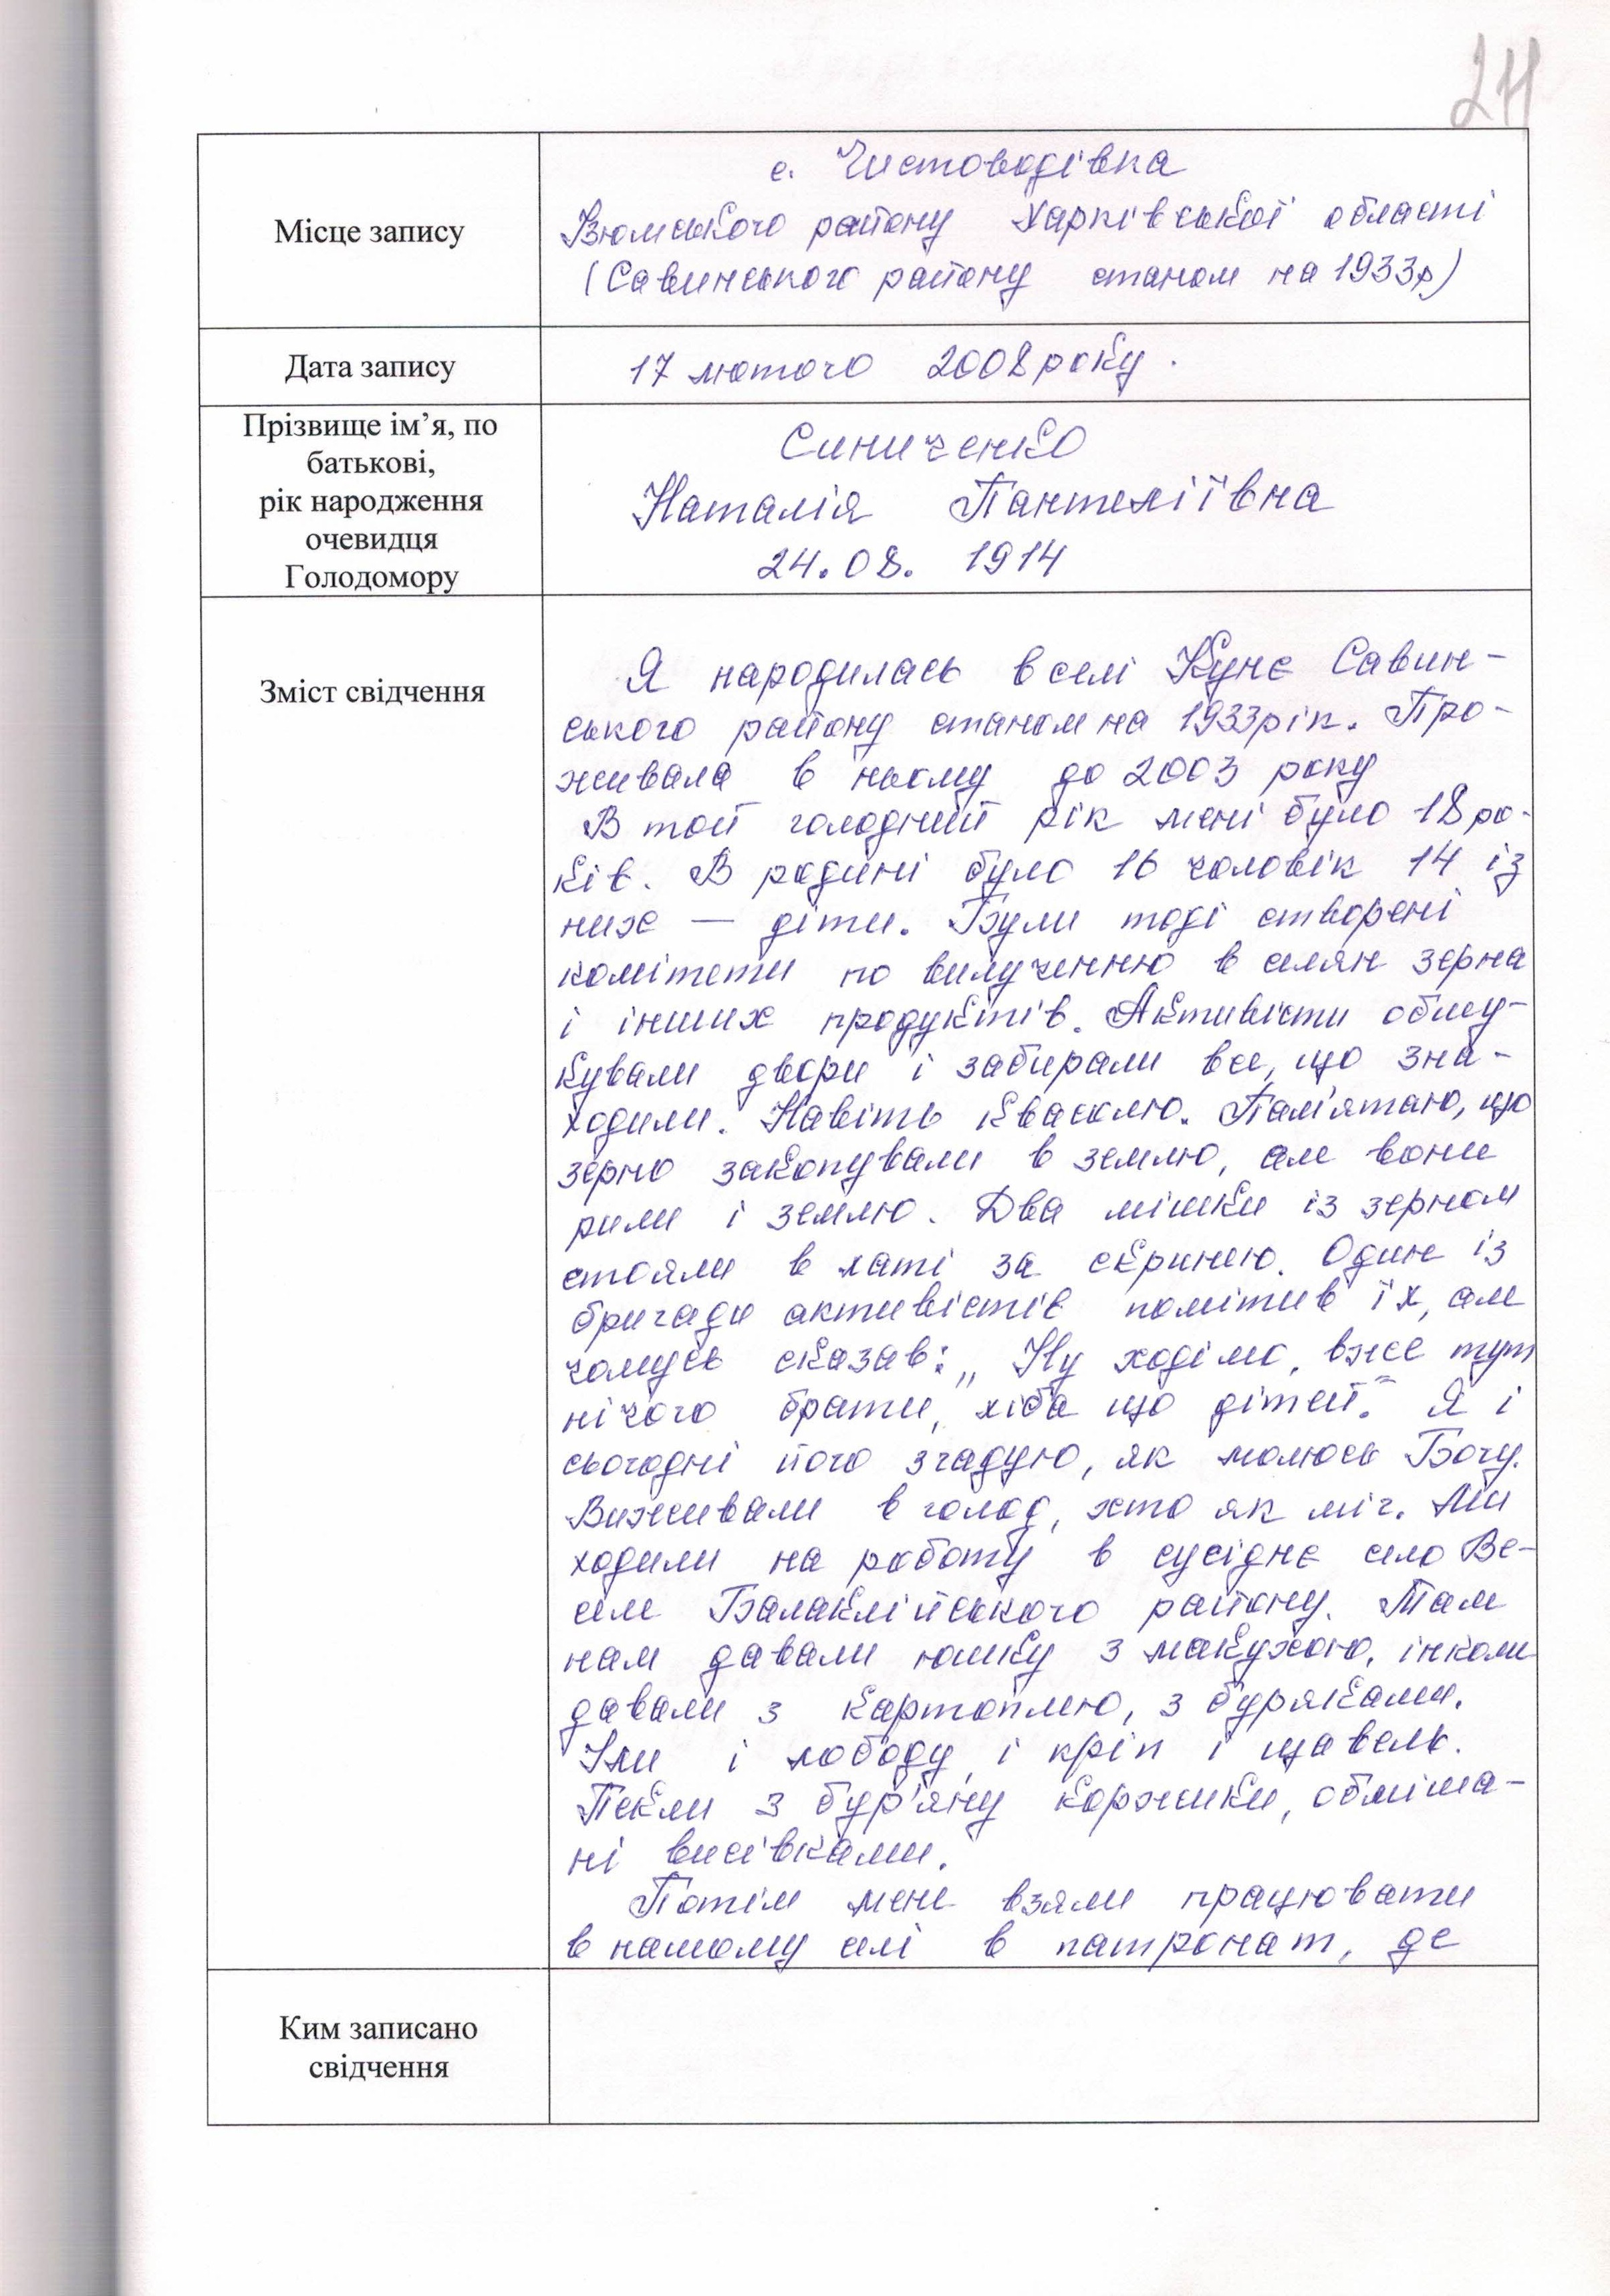 24
Місце запису
с. Чистоводівка
Ізюмського району Харківської області
(Савинського району станом на 1933р)
Дата запису
17 лютого 2008 року.
Прізвище ім’я, по
батькові,
рік народження
очевидця
Голодомору
Синиченко
Наталія Пантеліївна
24.08. 1914
Зміст свідчення
Я народилась в селі Куне Савин-
ського району станом на 1933 рік. Про-
живала в ньому до 2003 року
В той голодний рік мені було 18 ро-
ків. В родині було 16 чоловік 14 із
них — діти. Були тоді створені
комітети по вилученню в селян зерна
і інших продуктів. Активісти обшу-
кували двори і забирали все, що зна-
ходили. Навіть квасолю. Пам'ятаю, що
зерно закопували в землю, але вони
рили і землю. Два мішки із зерном
стояли в хаті за скринею. Один із
бригади активістів помітив їх, але
чомусь сказав: „Ну ходімо, вже тут
нічого брати, хіба що дітей." Я і
сьогодні його згадую, як молюсь Богу.
Виживали в голод, хто як міг. Ми
ходили на роботу в сусіднє село Ве-
селе Балаклійського району. Там
нам давали юшку з макухою, інколи
давали з картоплею, з буряками.
Їли і лободу, і кріп і щавель.
Пекли з бур'яну коржики, обліпле-
ні висівками.
Потім мене взяли працювати
в нашому селі в патронат, де
Ким записано
свідчення